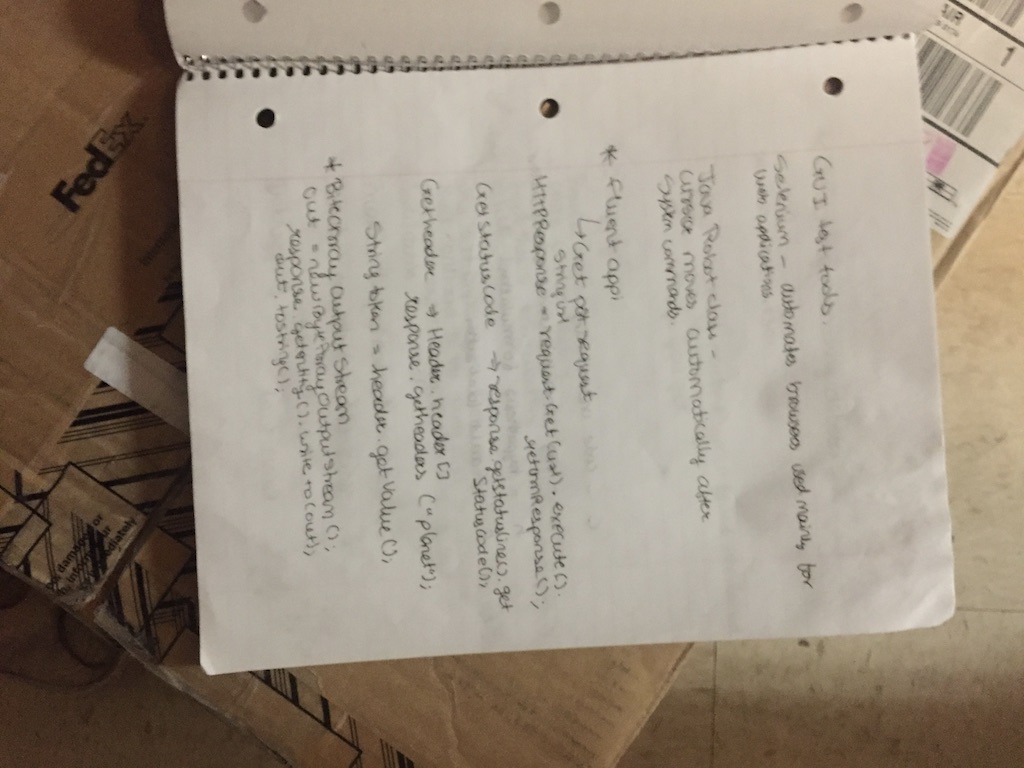 GUI test tools.
Selenium - automates browsers used mainly for
web applications
Java Robot class -
cursor moves automatically after
System commands.
* fluent appi
↳ Get request
String url
HttpResponse = request.Get(url).execute().
returnResponse();
Get status code → response.getstatusline().get
Statuscode();
Get header → Header.header[]
response.getheaders("planet");
String token = header.getvalue();
* Bytearray output Stream
out = new Byte array output stream();
response.getentity().write to(out);
out.tostring();
FedEx
1